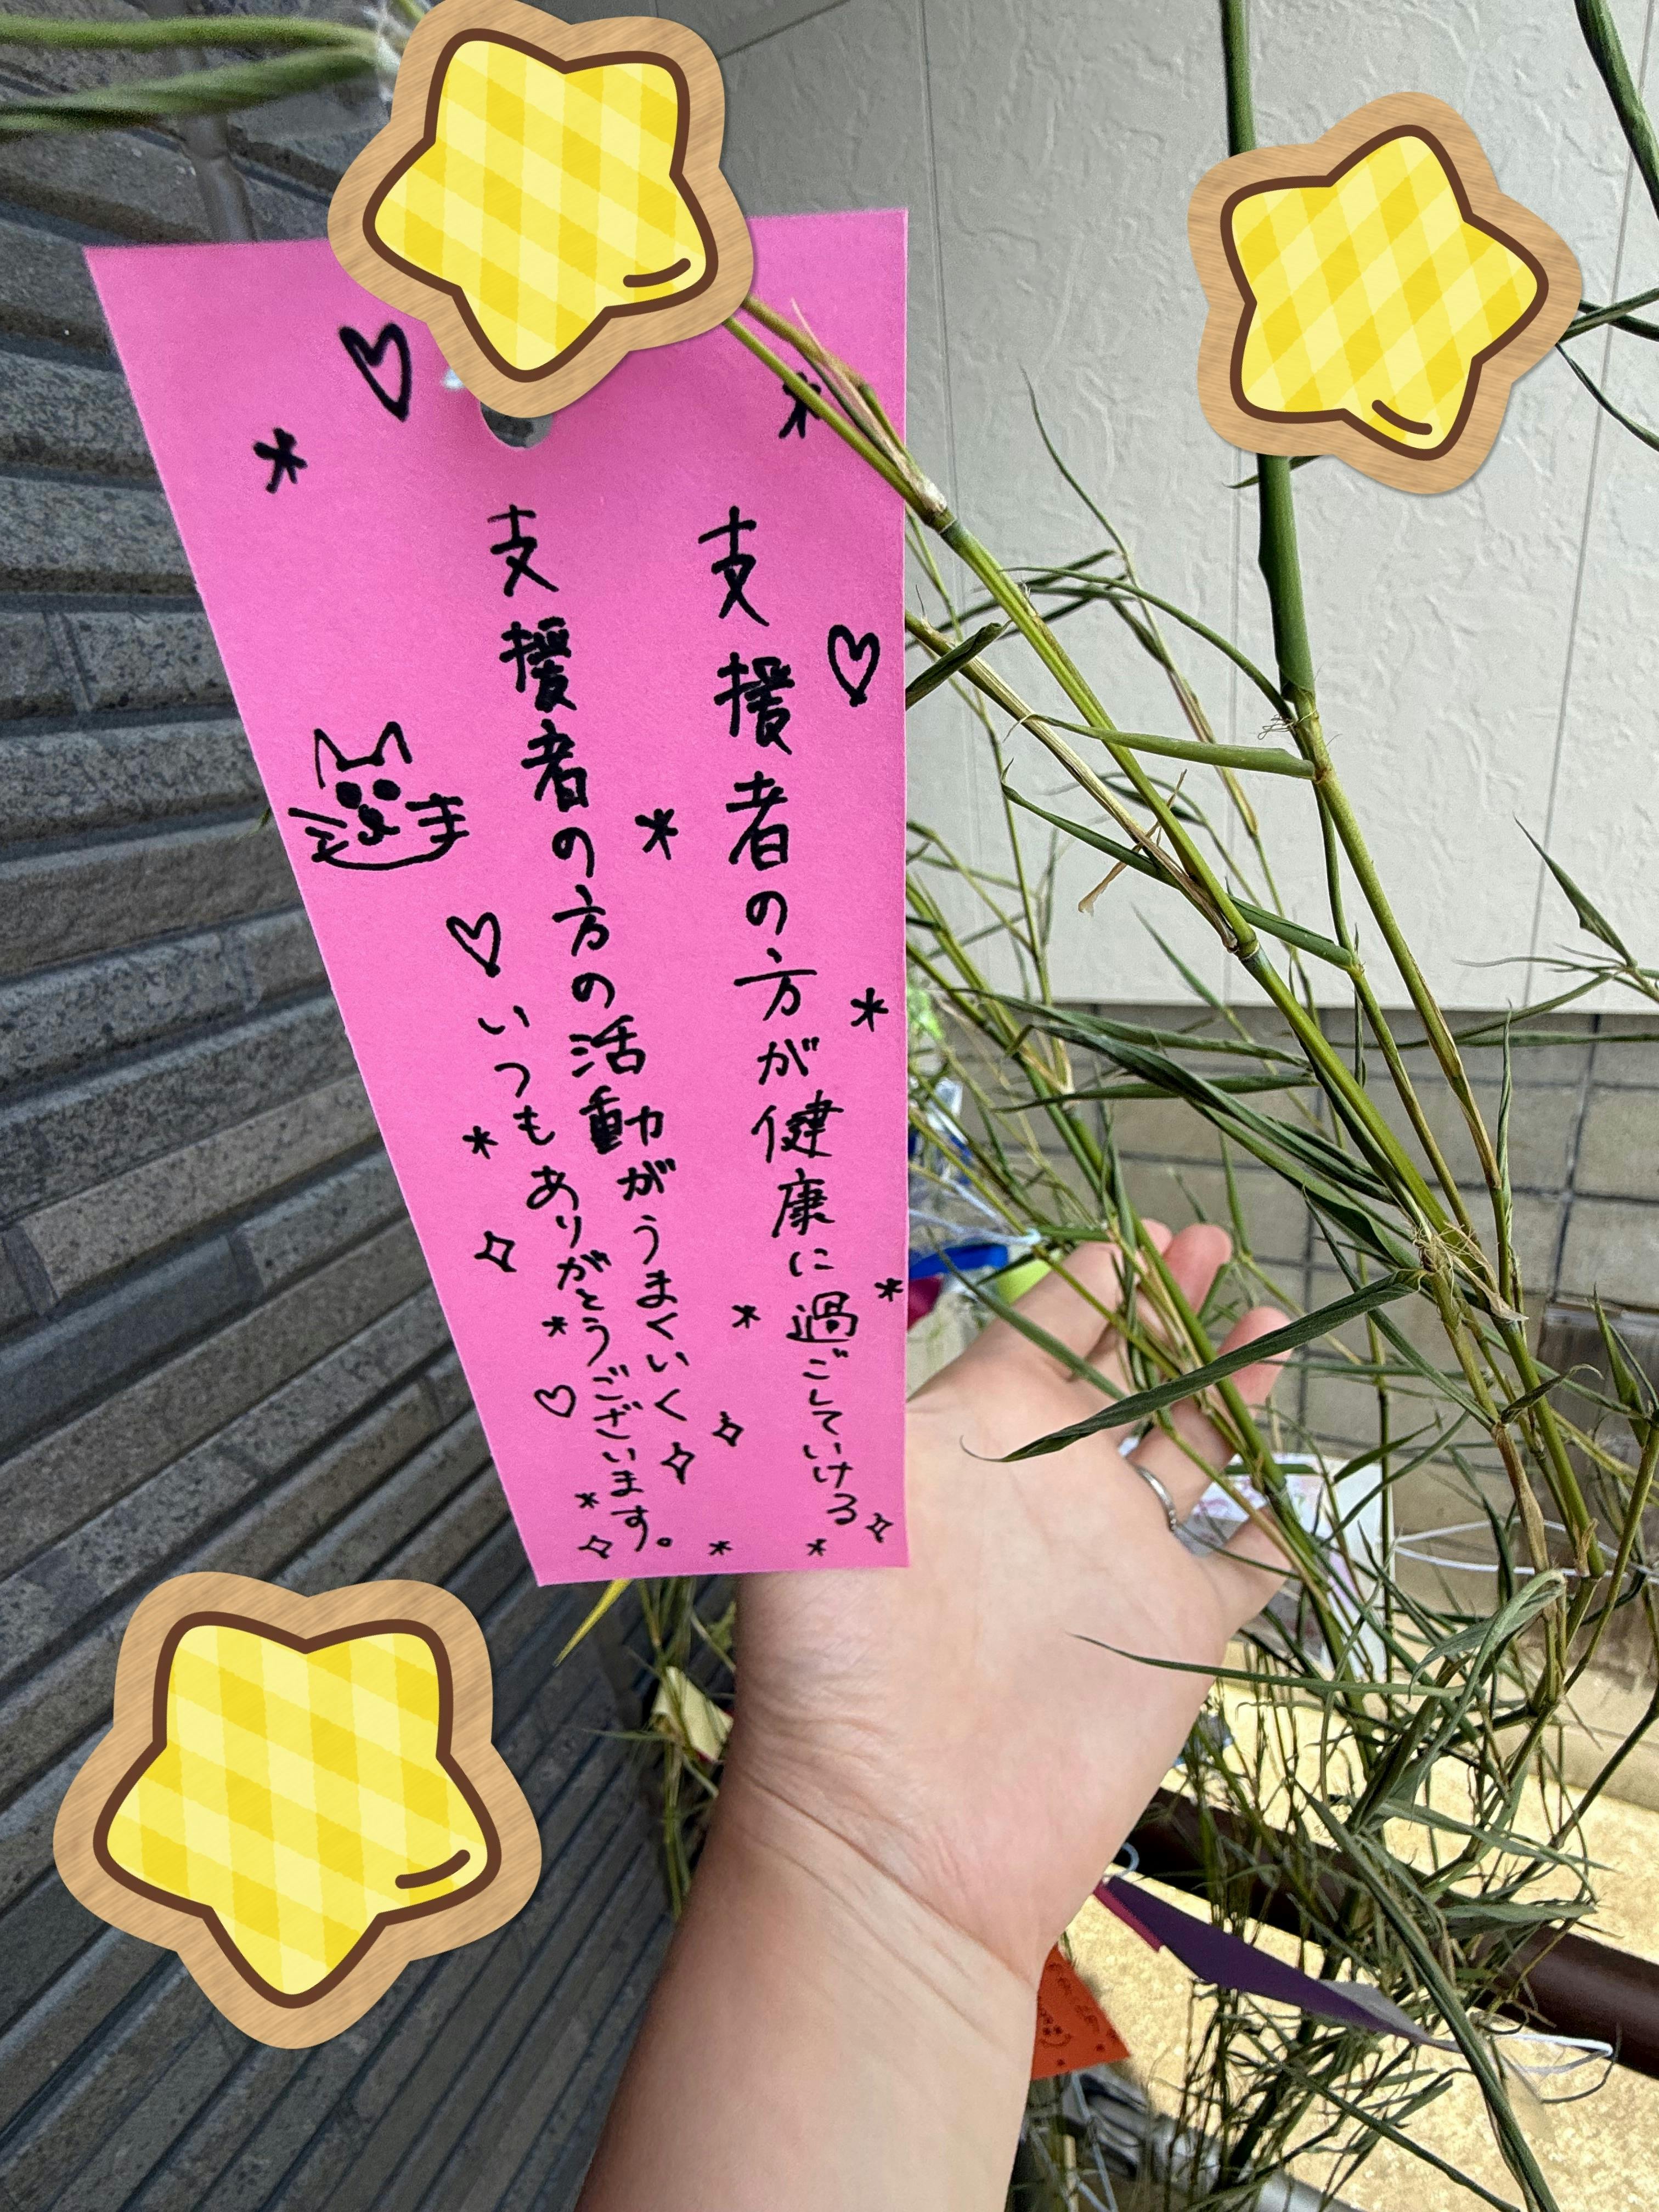 支援者の方が健康に過ごしていける
支援者の方の活動がうまくいく
いつもありがとうございます。